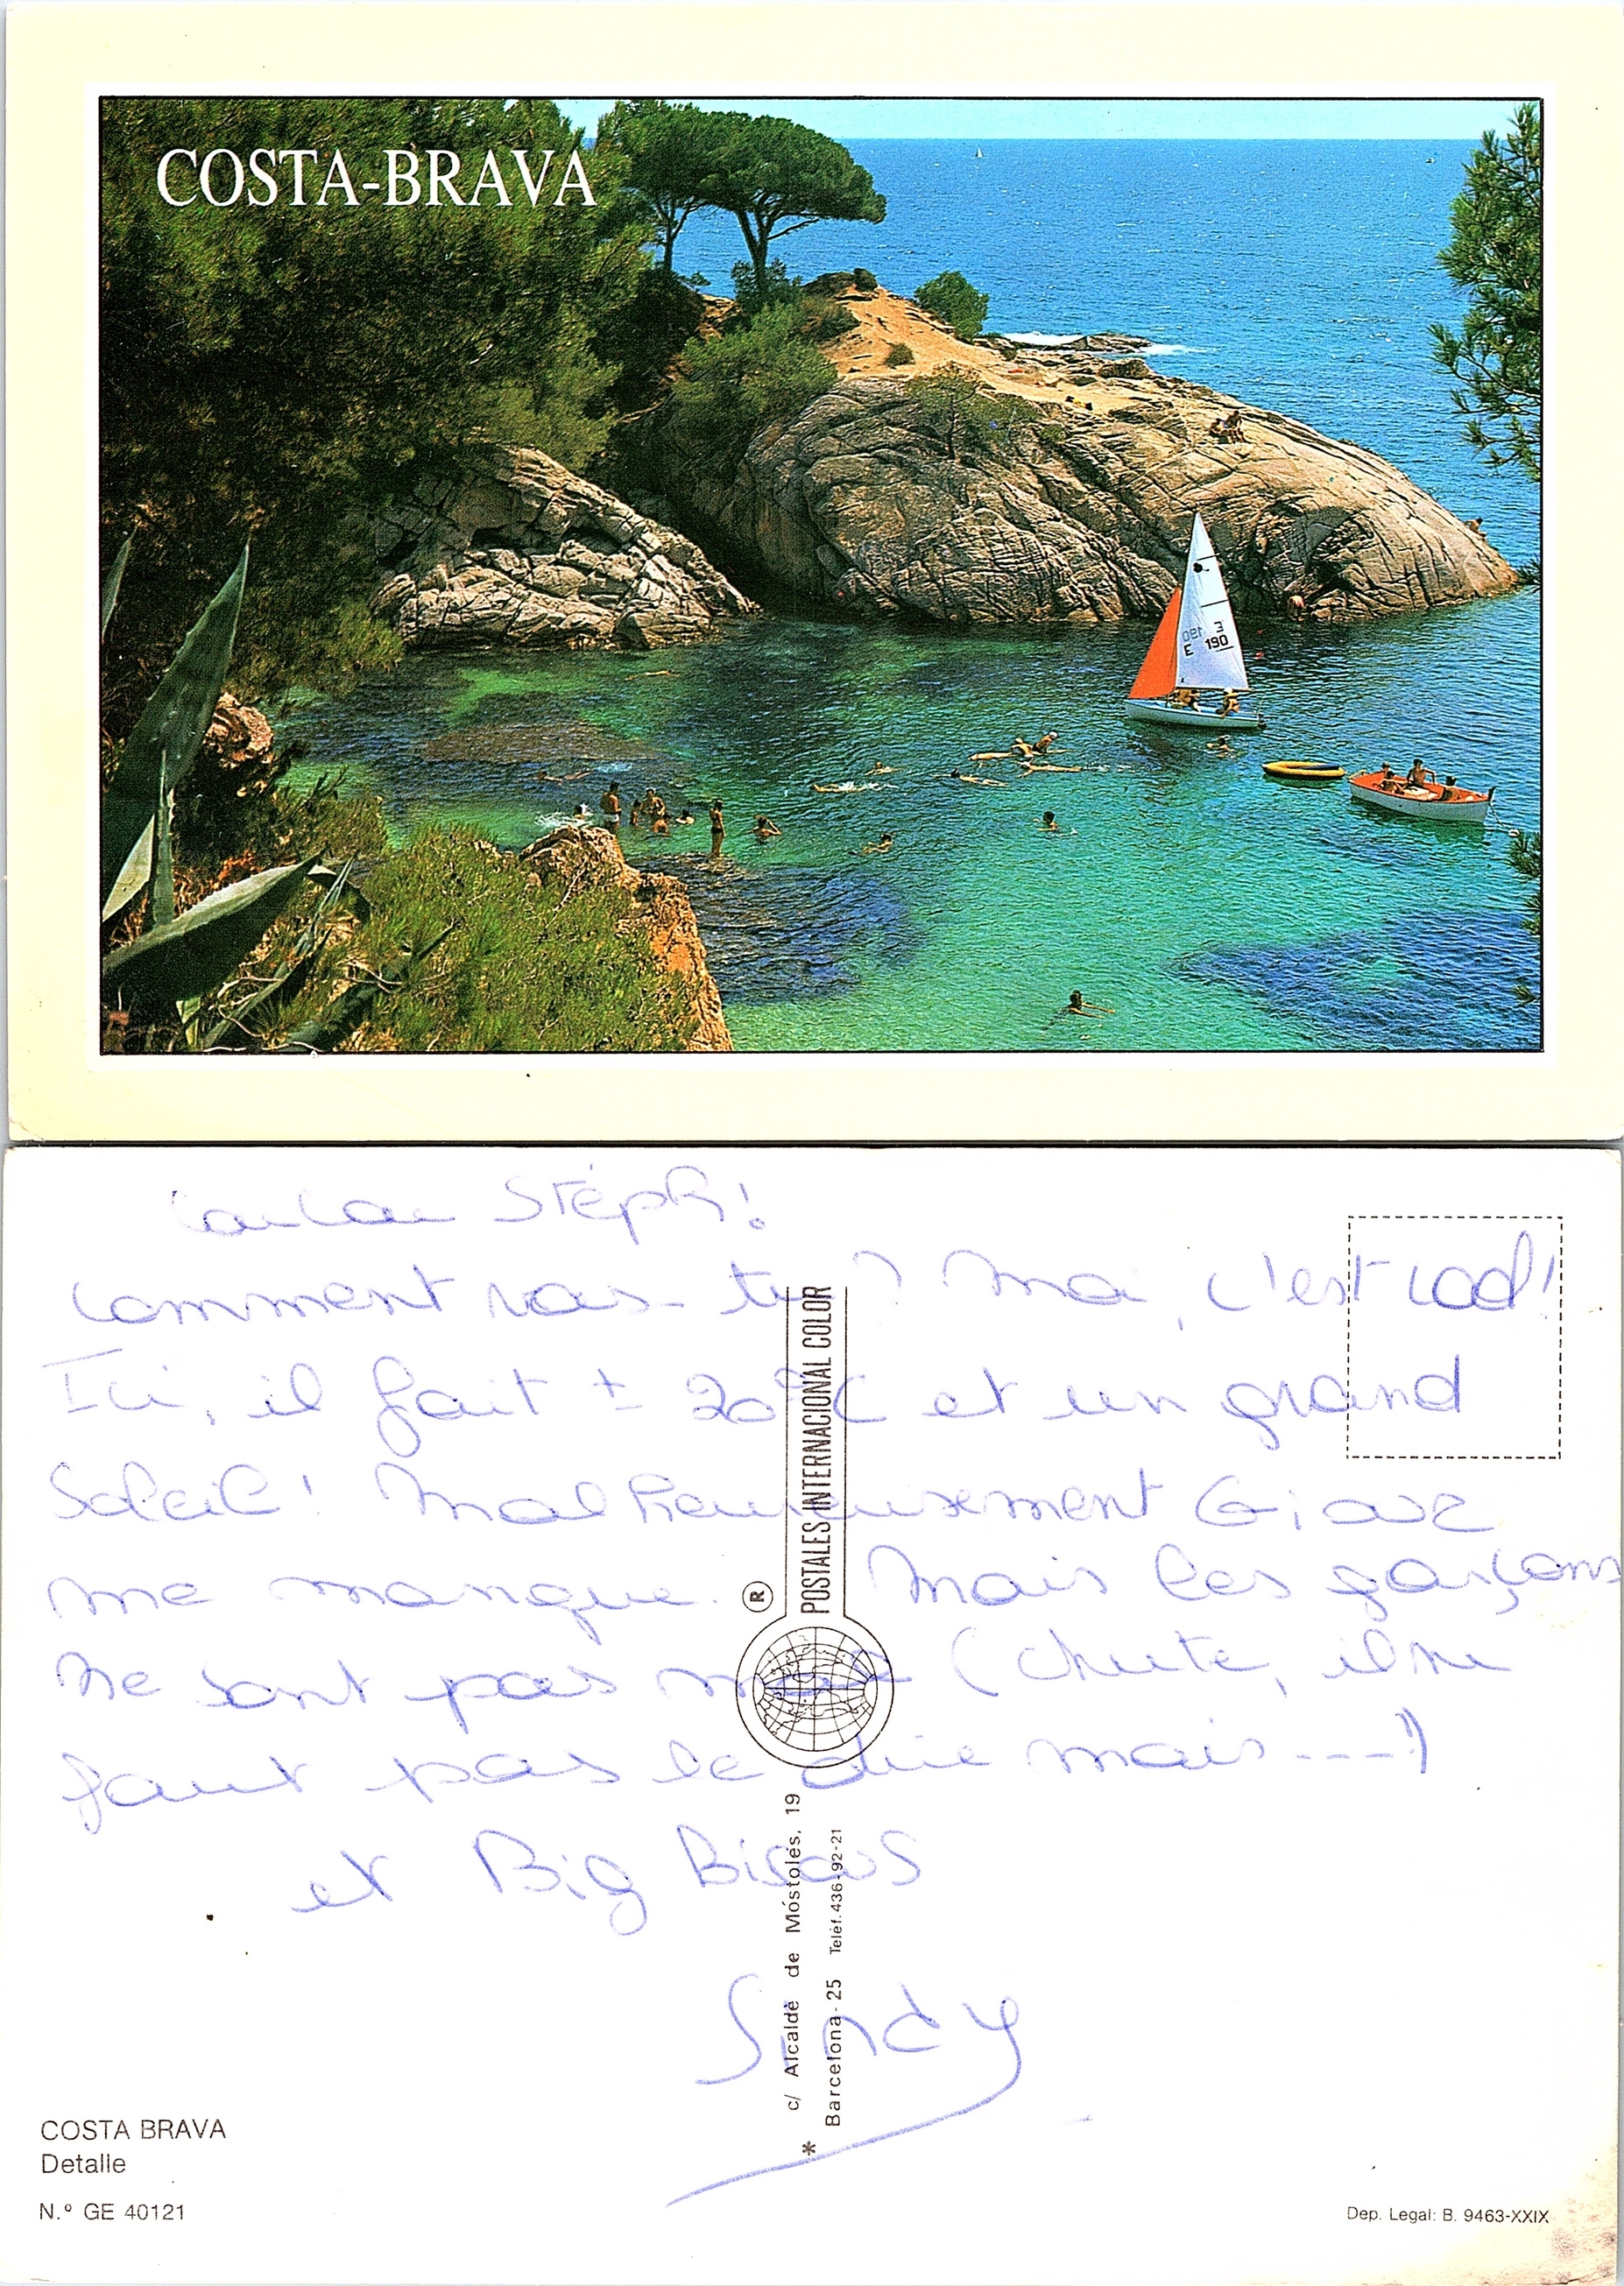 COSTA-BRAVA
E 190
Coucou Stéph!
Comment vas-tu ? Moi, c'est cool!
Ici, il fait ± 20°C et un grand
Soleil! Malheureusement
me manque. Mais les garçons
ne sont pas mal (chute, il ne
faut pas le dire mais ---!)
et Big Bisous
Sindy
® POSTALES INTERNACIONAL COLOR
* c/ Alcalde de Móstoles, 19
Barcelona - 25 Teléf. 436-92-21
COSTA BRAVA
Detalle
N.º GE 40121
Dep. Legal: B. 9463-XXIX